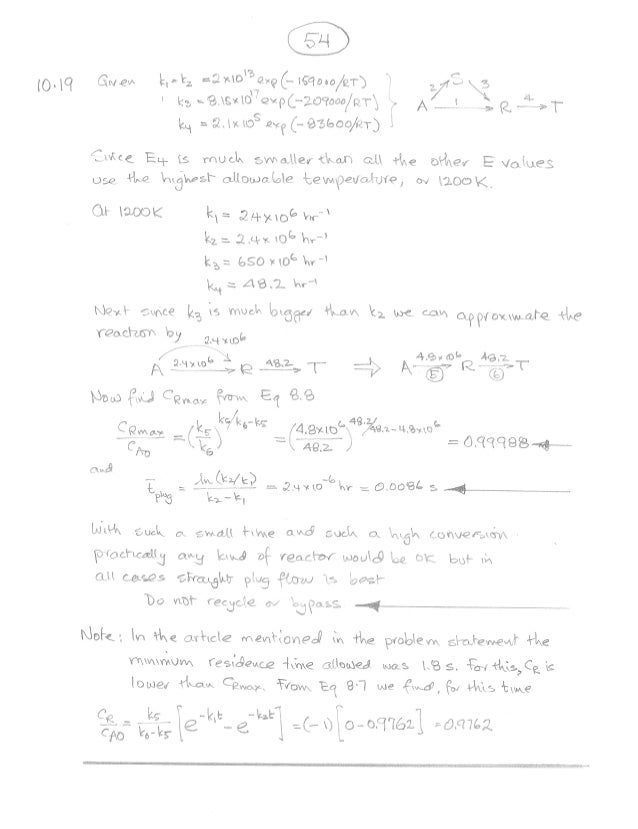 54
10.19 Given k₁=k₂ = 2×10¹³ exp(-159000/RT)
k₃ = 8.15×10¹⁷ exp(-209000/RT)
k₄ = 2.1×10⁵ exp(-83600/RT)
A 2 S 3 1 R 4 T
Since E₄ is much smaller than all the other E values
use the highest allowable temperature, or 1200K.
At 1200K k₁ = 24×10⁶ hr⁻¹
k₂ = 2.4×10⁶ hr⁻¹
k₃ = 650×10⁶ hr⁻¹
k₄ = 48.2 hr⁻¹
Next since k₃ is much bigger than k₂ we can approximate the
reaction by
2.4×10⁶
A 2.4×10⁶ → R 48.2 → T ⇒ A 4.8×10⁶ ⑤ → R 48.2 ⑥ → T
Now find CRmax from Eq 8.8
CRmax/CA0 = (k₅/k₆)^(k₆/k₆-k₅) = (4.8×10⁶/48.2)^(48.2/48.2-4.8×10⁶) = 0.99988
and
t̄plug = ln(k₂/k₁)/k₂-k₁ = 2.4×10⁻⁶ hr = 0.0086 s
With such a small time and such a high conversion
practically any kind of reactor would be OK but in
all cases straight plug flow is best
Do not recycle or bypass
Note: In the article mentioned in the problem statement the
minimum residence time allowed was 1.8 s. For this, CR is
lower than CRmax. From Eq 8.7 we find, for this time
CR/CA0 = k₅/k₆-k₅ [e^-k₁t - e^-k₂t] = (-1)[0-0.9762] = 0.9762